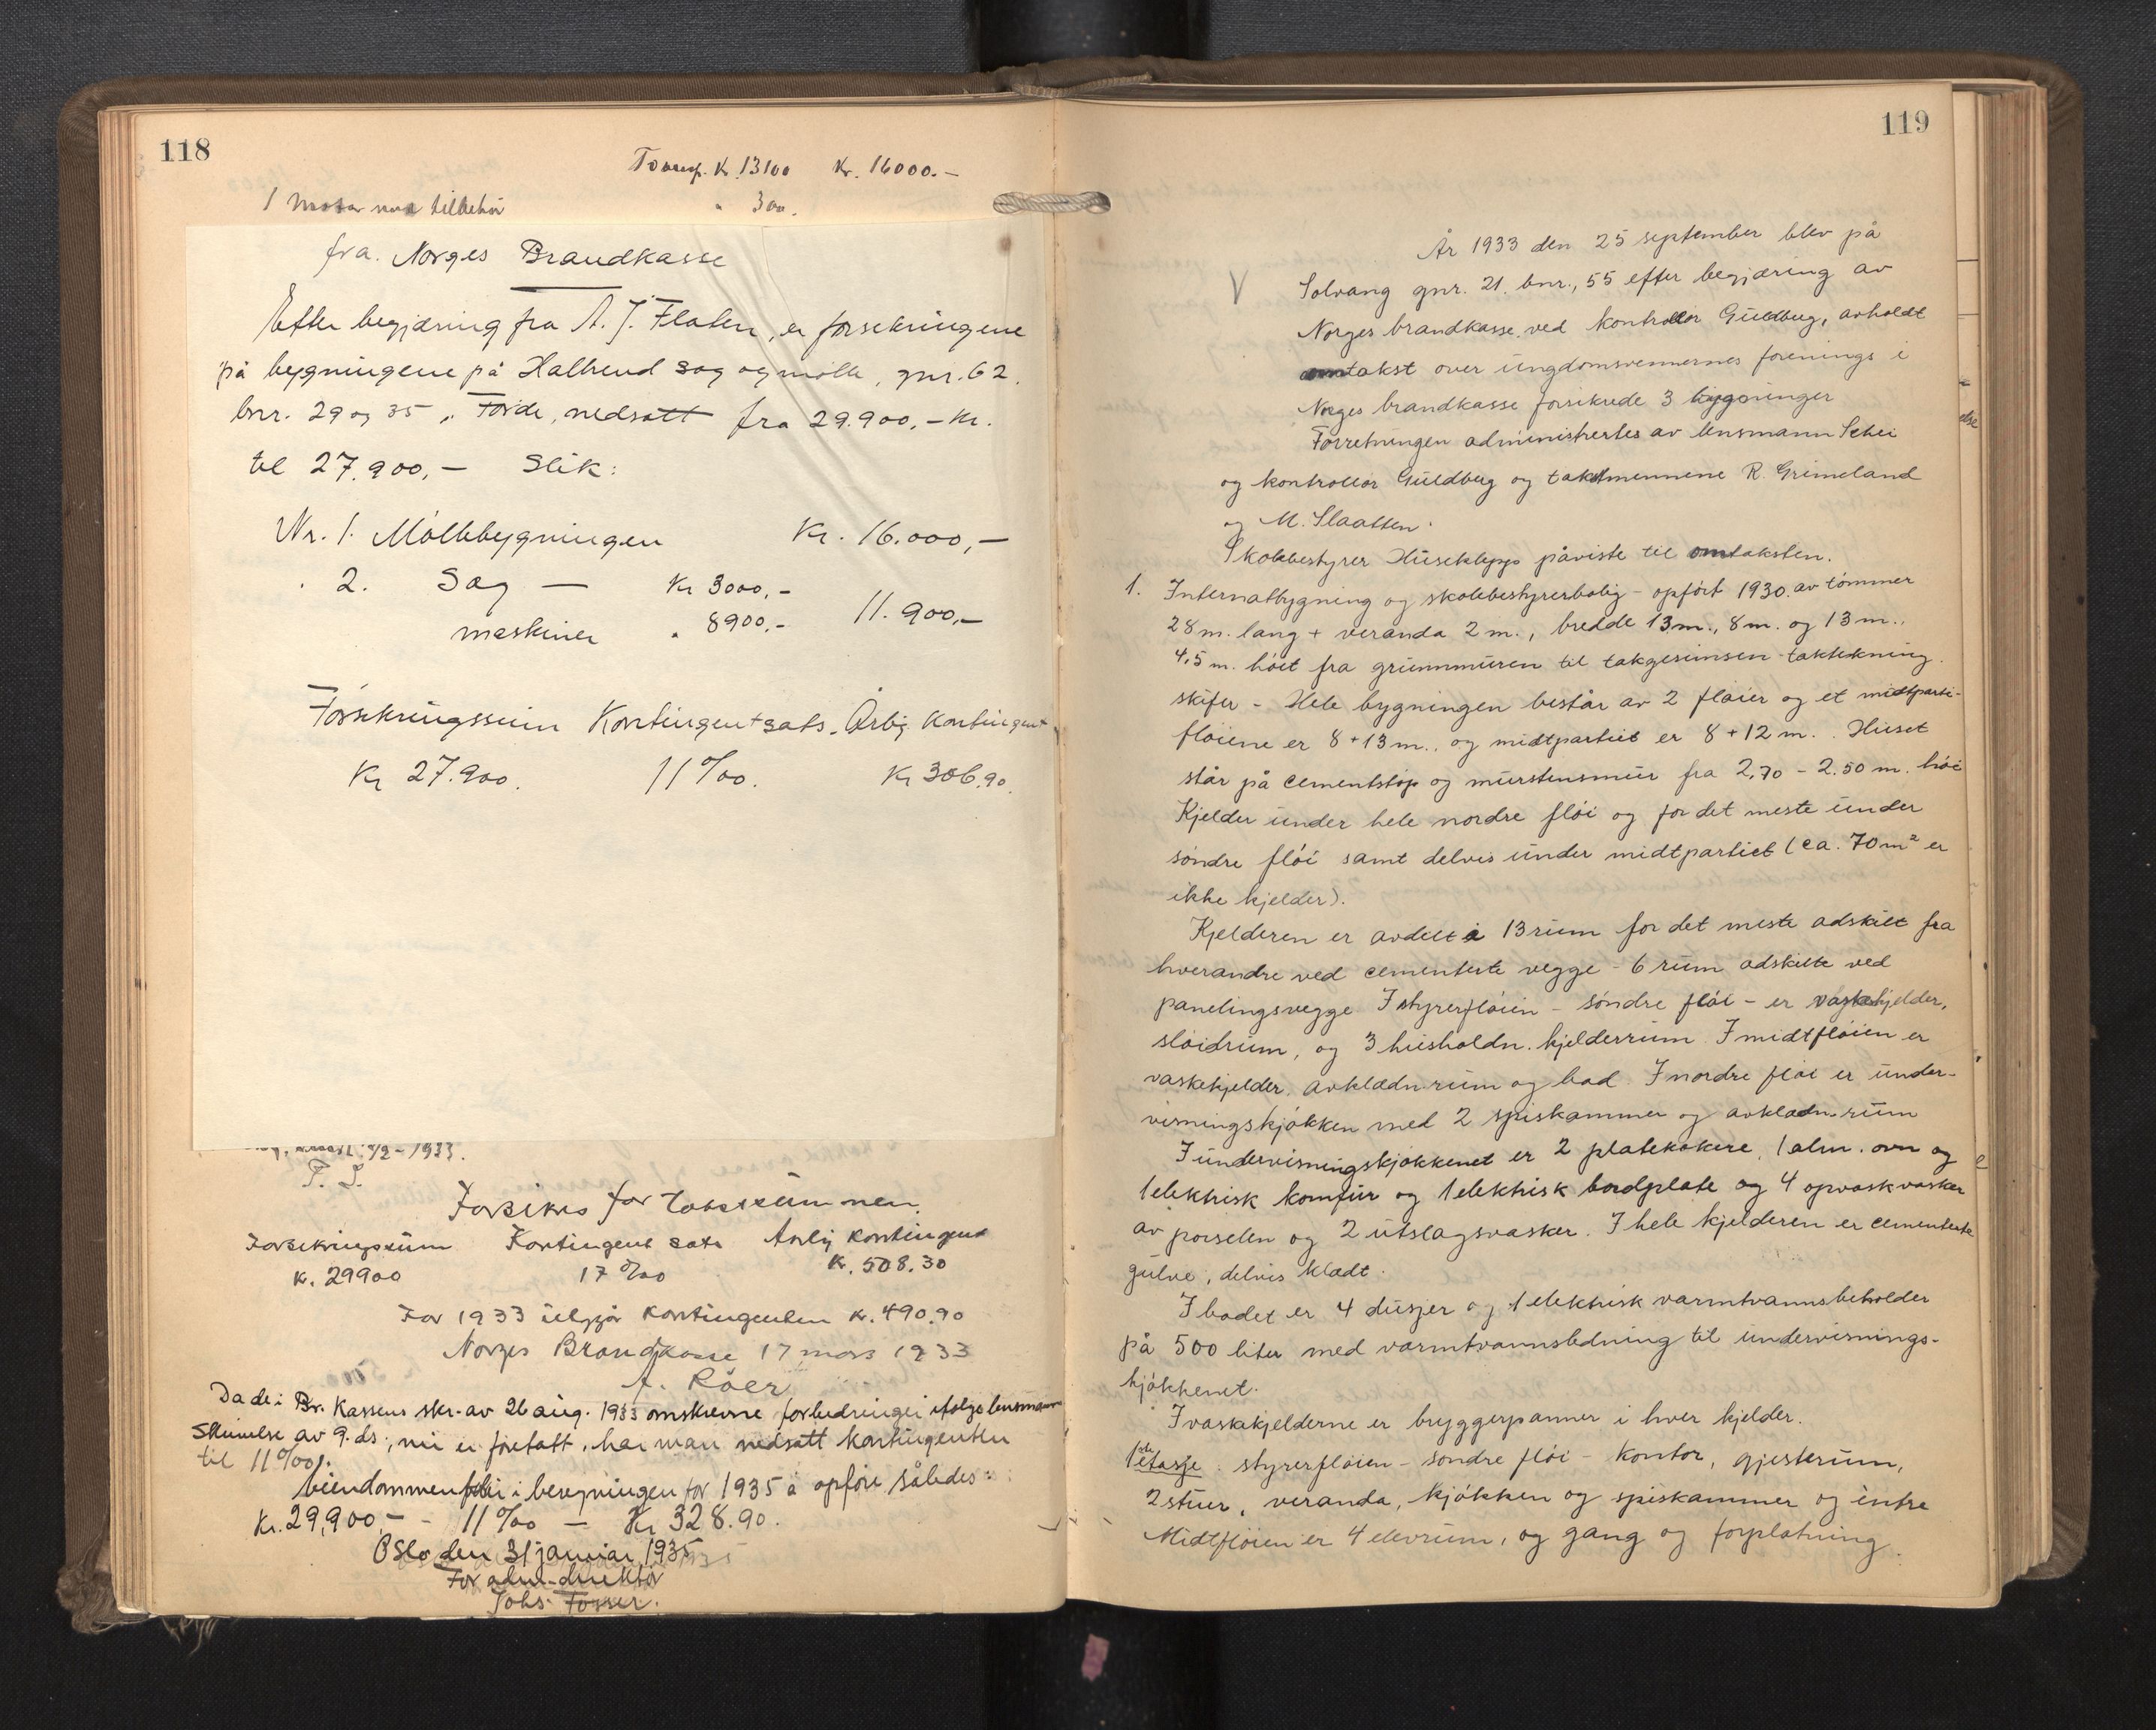 118
Transp. Kr. 13100 Kr. 16000.-
1 motor med tilbehör " 300.
fra. Norges Brandkasse
Efter begjæring fra A. J. Flaten, er forsekringene
på bygningene på Halbrend sag og mölle, gnr. 62.
bnr. 29 og 35, Förde, nedsatt fra 29.900,- kr.
til 27.900,- Slik:
Nr. 1. Möllebygningen Kr. 16.000,-
" 2. Sag — Kr 3000,-
maskiner " 8900,- 11.900,-
Forsekringssum Kontingentsats. Årlig Kontingent
Kr 27.900. 11 ‰. Kr 306.90.
9/2-1933.
P. S.
Forsikres for takstsummen.
Forsekringssum Kontingent sats Årlig kontingent
Kr. 29900 17 ‰ Kr. 508.30
For 1933 utgjör kontingenten Kr. 490.90
Norges Brandkasse 17 mars 1933
A. Röer
Da de i Br. Kassens skr. av 26 aug. 1933 omskrevne forbedringer ifölge lensmann
Skrivelse av 9. ds., nu er foretatt, har man nedsatt kontingenten
til 11 ‰.
beiendommen blir i beregningen for 1935 å opföre således:
Kr. 29,900,- - 11 ‰ — Kr 328.90.
Oslo den 31 januar 1935
For adm. direktör
Johs. Fosser.
119
År 1933 den 25 september blev på
V Solvang gnr. 21. bnr., 55 efter begjæring av
Norges brandkasse ved kontrollör Guldberg, avholdt
omtakst over ungdomsvennernes forenings i
Norges brandkasse forsikrede 3 bygninger
Forretningen administrertes av lensmann Schei
og kontrollör Guldberg og takstmennene R. Grimeland
og M. Slaatten.
Skolebestyrer Huseklepp påviste til omtaksten.
1. Internatbygning og skolebestyrerbolig - opfört 1930. av tömmer
28 m. lang + veranda 2 m., bredde 13 m., 8 m. og 13 m.,
4,5 m. höit fra grunnmuren til takgesimsen taktekning
skifer - Hele bygningen består av 2 flöier og et midtparti-
flöiene er 8 + 13 m., og midtpartiet er 8 + 12 m. Huset
står på cementstöp og murstensmur fra 2,70 - 2.50 m. höi
Kjelder under hele nordre flöi og for det meste under
söndre flöi samt delvis under midtpartiet (ca. 70 m² er
ikke kjelder).
Kjelderen er avdelt i 13 rum for det meste adskilt fra
hverandre ved cementerte vegge - 6 rum adskilte ved
panelingsvegge I styrerflöien - söndre flöi - er vaskekjelder,
slöidrum, og 3 husholdn. kjelderrum I midtflöien er
vaskekjelder, avklædn. rum og bad. I nordre flöi er under-
visningskjökken med 2 spiskammer og avklædn. rum
I undervisningskjökkenet er 2 platekokere, 1 alm. ovn og
1 elektrisk komfur og 1 elektrisk bordplate og 4 opvaskvasker
av porselen og 2 utslagsvasker. I hele kjelderen er cementerte
gulve, delvis klædt.
I badet er 4 dusjer og 1 elektrisk varmtvannsbeholder
på 500 liter med varmtvannsledning til undervisnings-
kjökkenet.
I vaskekjelderne er bryggerpanner i hver kjelder.
1ste etasje. styrerflöien - söndre flöi - kontor, gjesterum,
2 stuer, veranda, kjökken og spiskammer og entre
Midtflöien er 4 elevrum, og gang og forplatning.